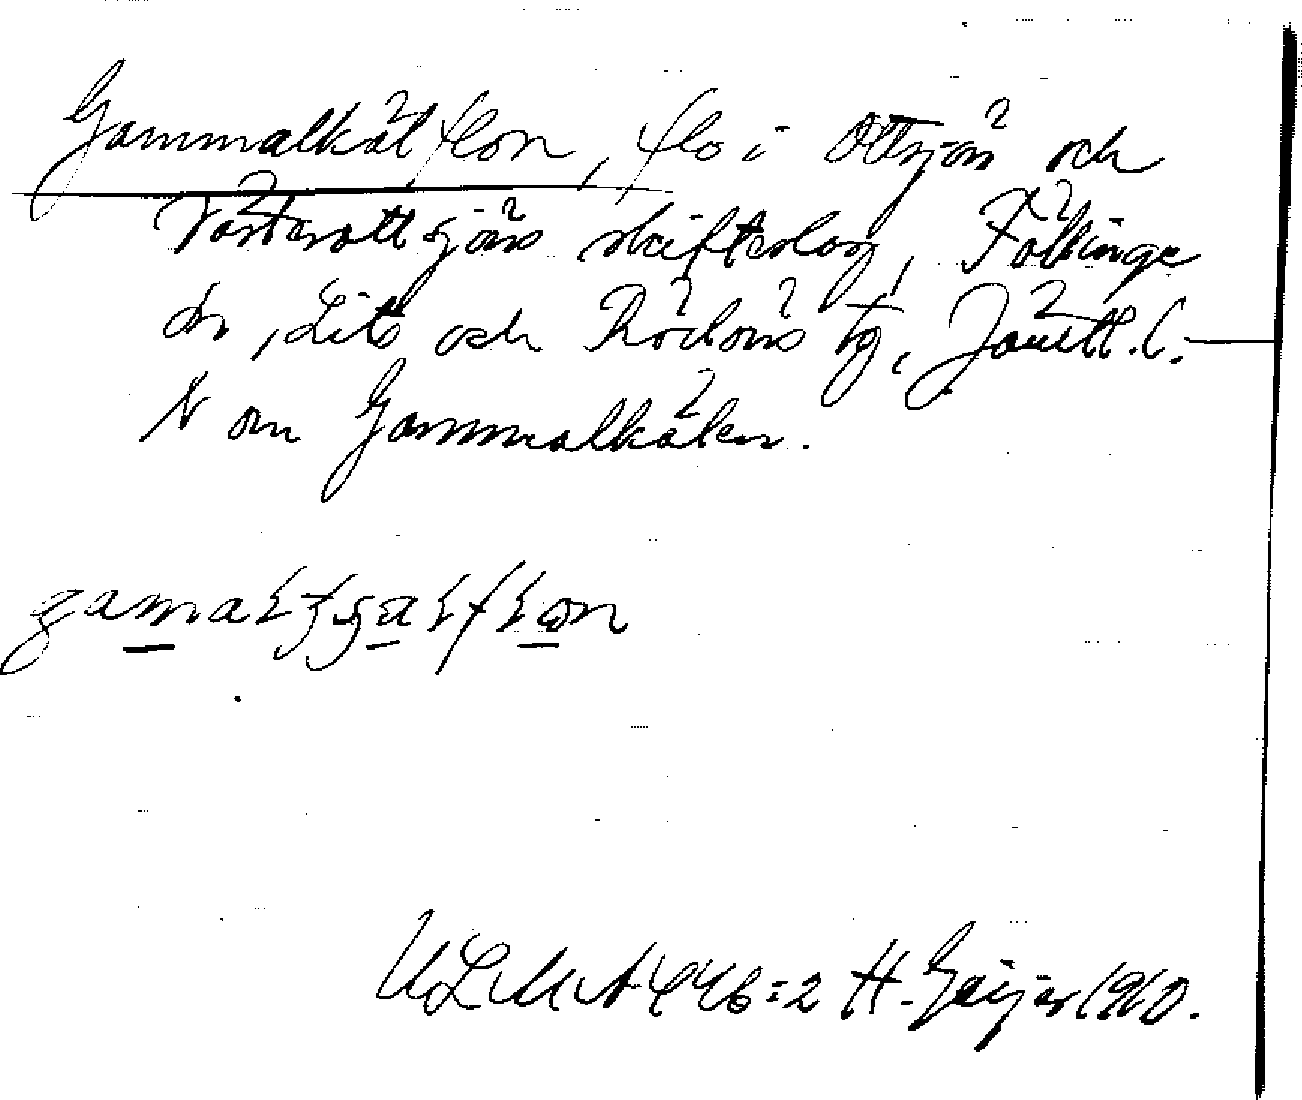 Gammalkälflon, flo i Ottsjön och
Västerottsjöns skifteslag, Föllinge
sn, Lits och Rödöns tg, Jämtl. l.
N om Gammalkälen.
ULMA 446:2 H. Geijer 1910.